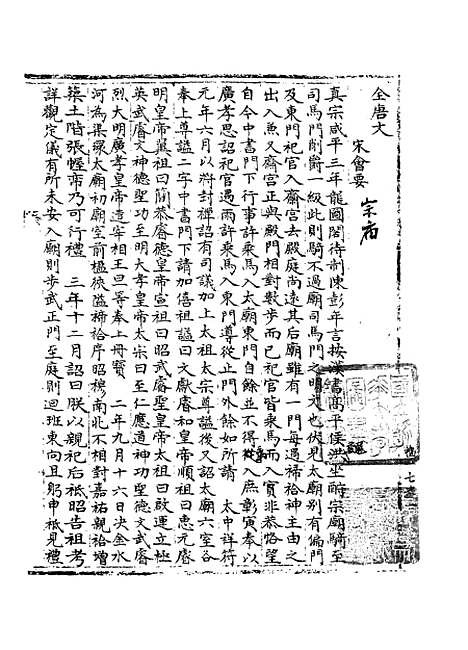 全唐文
宋會要
宗廟
真宗咸平三年龍圖閣待制陳彭年言按漢書高平侯洪坐酎宗廟騎至
司馬門削爵一級此則騎不過廟司馬門之明文也伏見太廟別有偏門
及東門祀官入齋宮去殿庭尚遠其后廟雖有一門每遇禘祫神主由之
出入魚又齋宮正與殿門相對數步而已祀官皆乘馬而入實非恭恪望
自今中書門下行事許乘馬入太廟東門自餘並不得乘入庶彰寅奉以
廣孝思詔祀官遇雨許乘馬入東門導從止門外餘如所請 太中祥符
元年六月以將封禪詔有司議加上太祖太宗尊謚後又詔太廟六室各
奉上尊謚二字中書門下請加僖祖謚曰文獻睿和皇帝順祖曰惠元睿
明皇帝翼祖曰簡恭睿德皇帝宣祖曰昭武睿聖皇帝太祖曰啟運立極
英武睿文神德聖功至明大孝皇帝太宗曰至仁應道神功聖德文武睿
烈大明廣孝皇帝遣宰相王旦等奉上冊寶 二年九月十六日決金水
河為渠環太廟初廟室前楹狹隘禘祫序昭穆南北不相對嘉祐親祫增
築土階張幄帟乃可行禮 三年十二月詔曰朕以親祀后祗昭告祖考
詳觀定儀有所未安入廟則步武正門至庭則迴班東向且躬申祗見禮